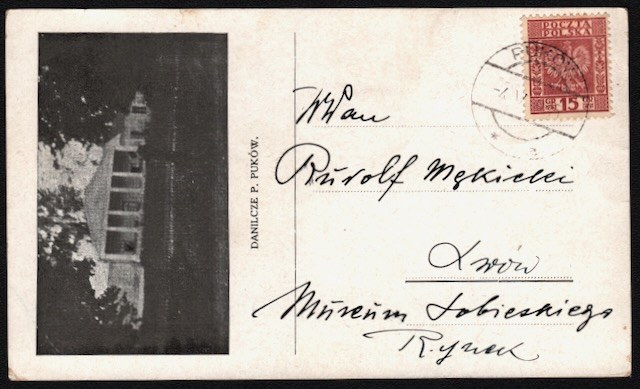 DANILCZE P. PUKÓW.
POCZTA
POLSKA
GR 15 GR
WPan
Rudolf Mękicki
Lwów
Muzeum Sobieskiego
Rynek